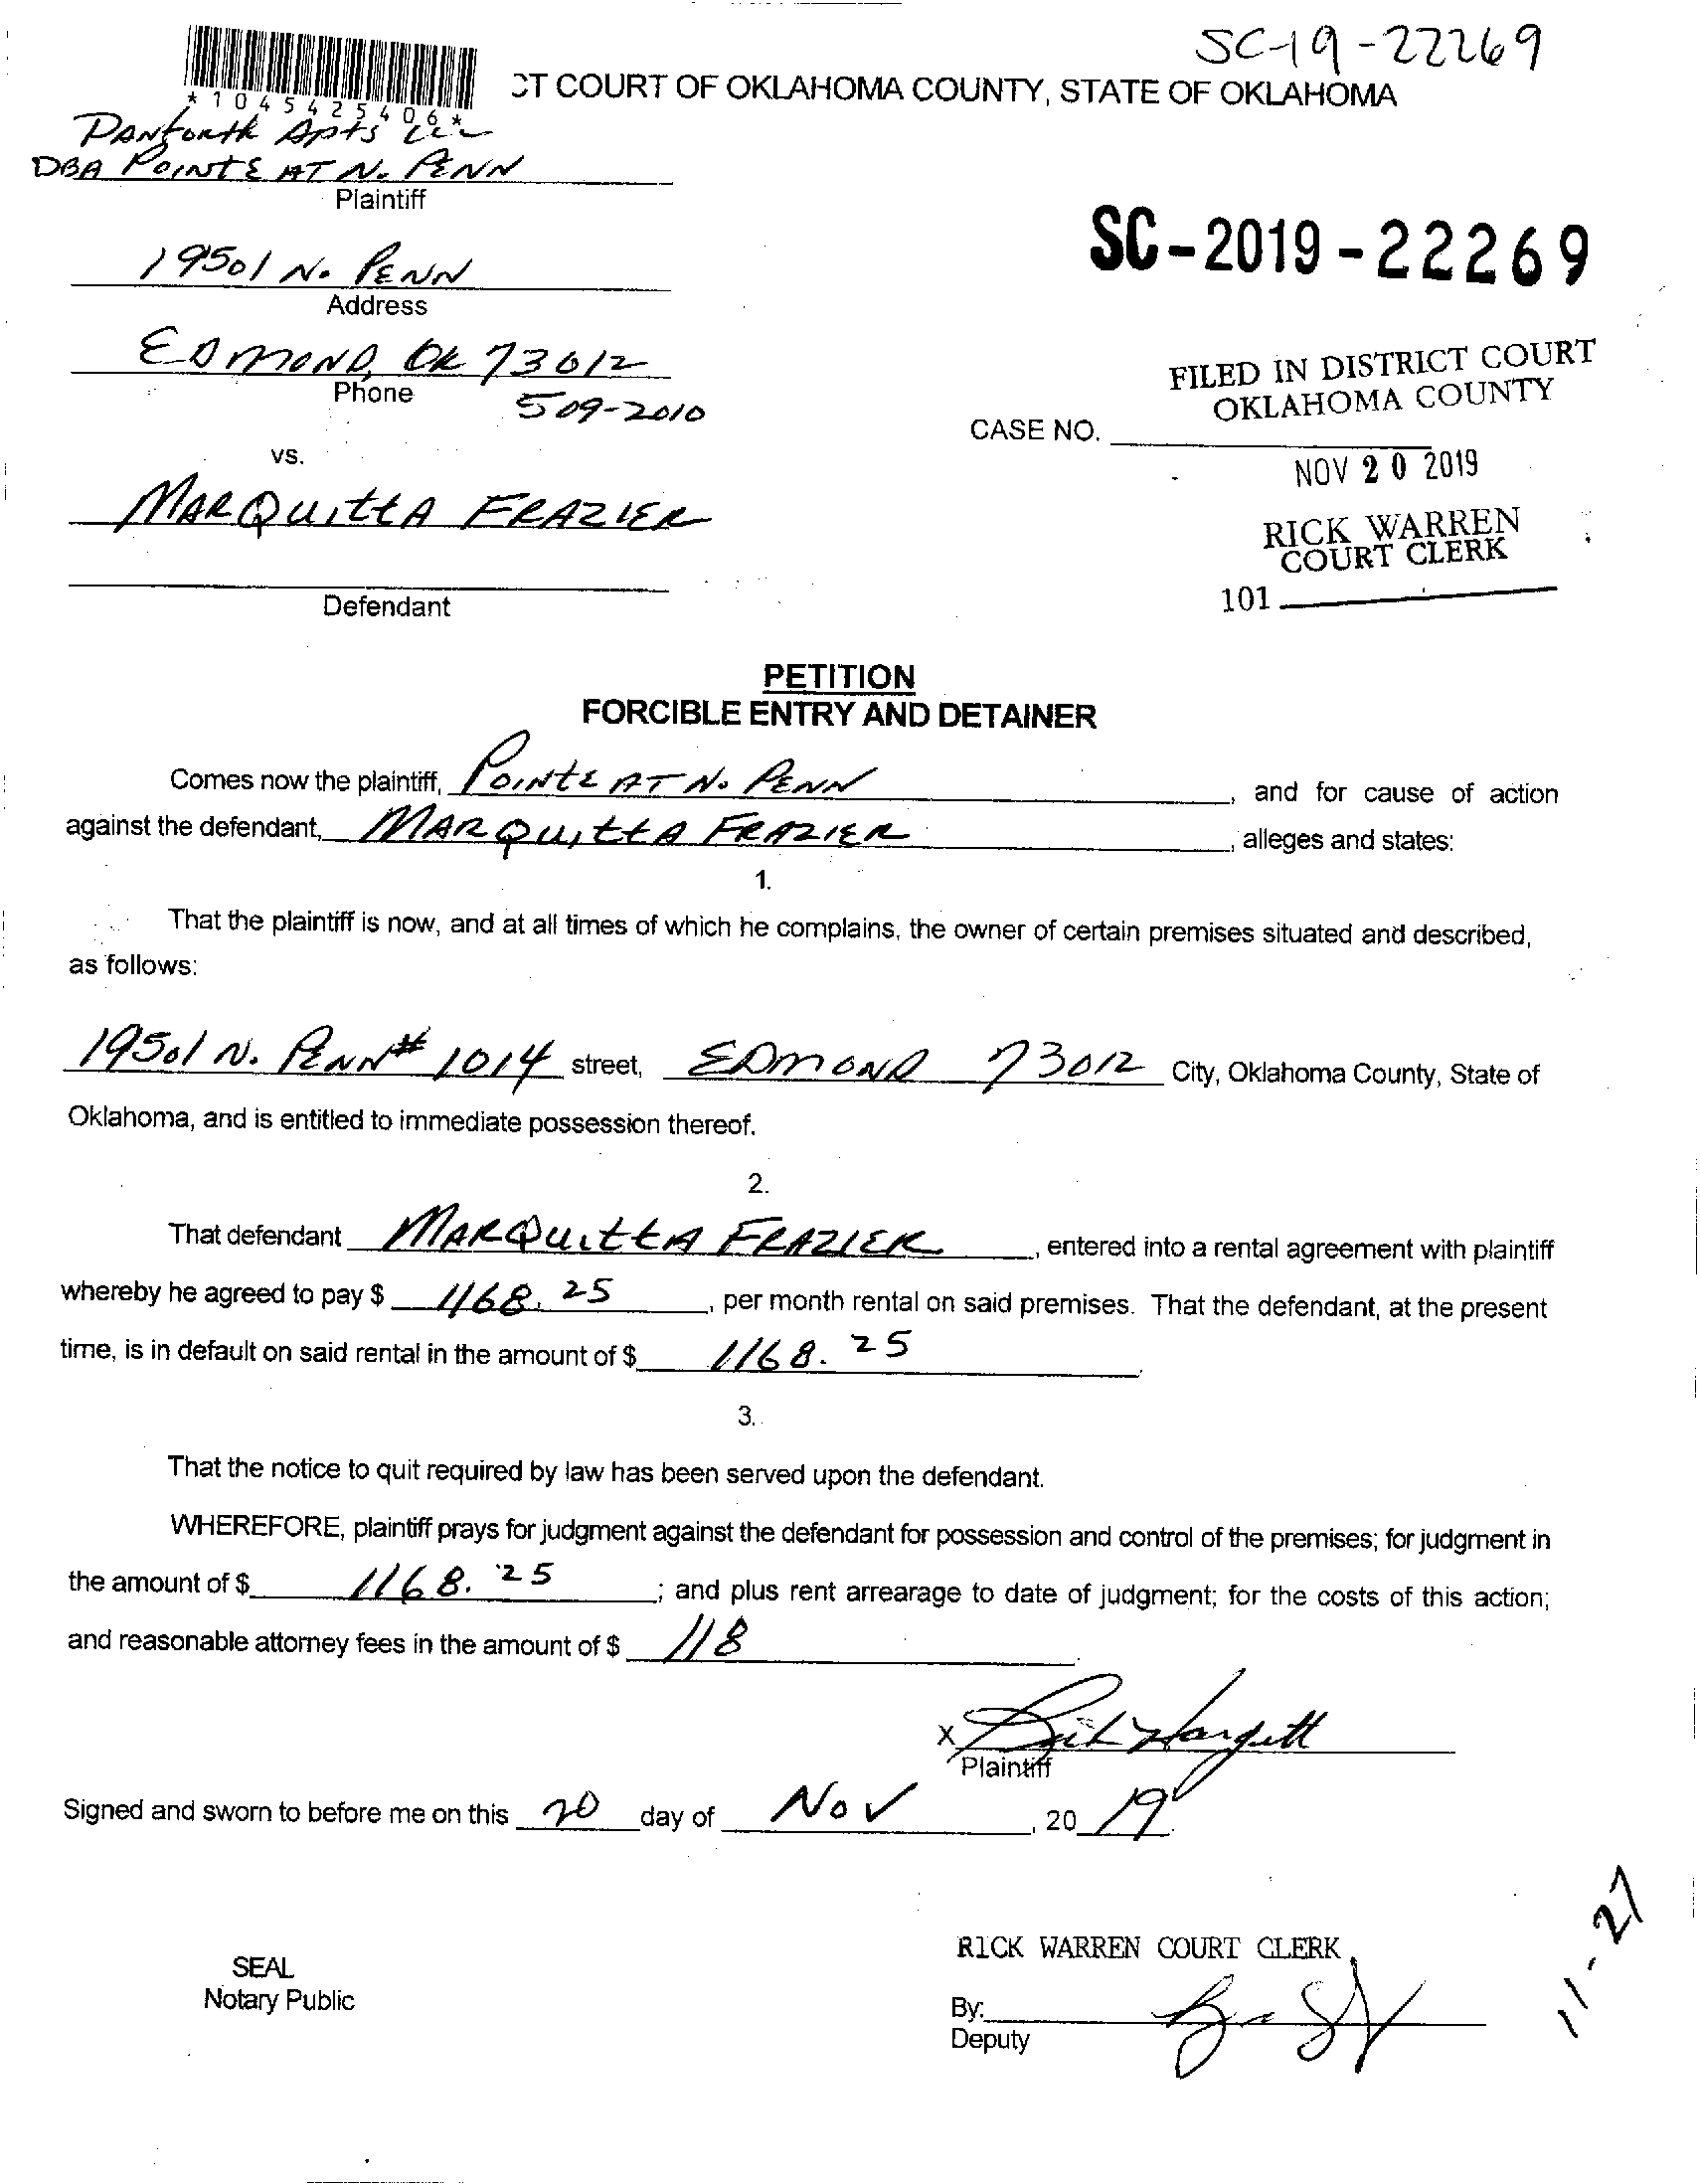 SC-19-22269
CT COURT OF OKLAHOMA COUNTY, STATE OF OKLAHOMA
*1045425406*
DANFORTH APTS LLC
DBA POINTE AT N. PENN
Plaintiff
19501 N. PENN
Address
SC-2019-22269
EDMOND, OK 73012
Phone
509-2010
FILED IN DISTRICT COURT
OKLAHOMA COUNTY
CASE NO.
NOV 20 2019
vs.
MARQUITTA FRAZIER
RICK WARREN
COURT CLERK
101
Defendant
PETITION
FORCIBLE ENTRY AND DETAINER
Comes now the plaintiff, POINTE AT N. PENN, and for cause of action
against the defendant, MARQUITTA FRAZIER, alleges and states:
1.
That the plaintiff is now, and at all times of which he complains, the owner of certain premises situated and described,
as follows:
19501 N. PENN # 1014 street, EDMOND 73012 City, Oklahoma County, State of
Oklahoma, and is entitled to immediate possession thereof.
2.
That defendant MARQUITTA FRAZIER, entered into a rental agreement with plaintiff
whereby he agreed to pay $ 1168.25, per month rental on said premises. That the defendant, at the present
time, is in default on said rental in the amount of $ 1168.25.
3.
That the notice to quit required by law has been served upon the defendant.
WHEREFORE, plaintiff prays for judgment against the defendant for possession and control of the premises; for judgment in
the amount of $ 1168.25; and plus rent arrearage to date of judgment; for the costs of this action;
and reasonable attorney fees in the amount of $ 118.
X
Plaintiff
Signed and sworn to before me on this 20 day of Nov, 20 19.
11-27
RICK WARREN COURT CLERK
SEAL
Notary Public
By:
Deputy